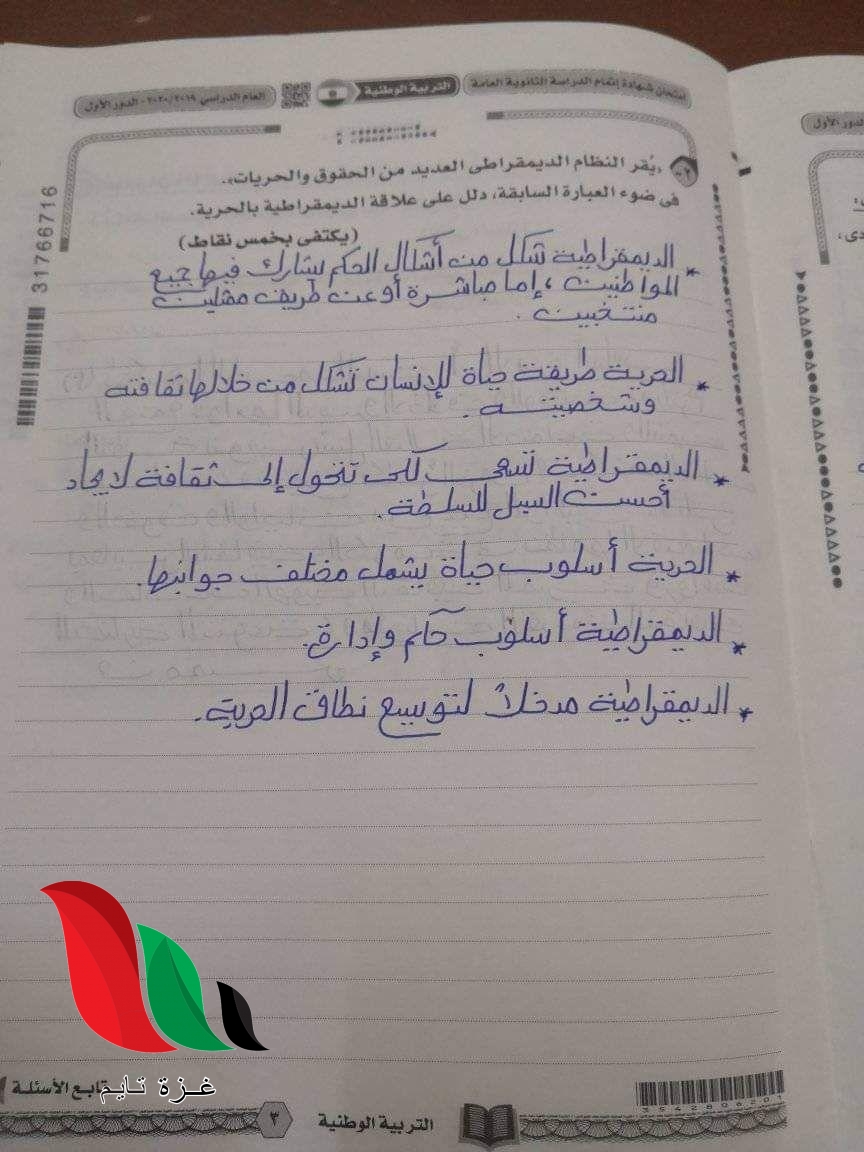 امتحان شهادة إتمام الدراسة الثانوية العامة
التربية الوطنية
العام الدراسي ٢٠٢٠/٢٠١٩ - الدور الأول
الدور الأول
٢- «يُقر النظام الديمقراطى العديد من الحقوق والحريات».
فى ضوء العبارة السابقة، دلل على علاقة الديمقراطية بالحرية.
(يكتفى بخمس نقاط)
* الديمقراطية شكل من أشكال الحكم يشارك فيها جميع
المواطنين ، إما مباشرة أو عن طريق ممثلين
منتخبين .
* الحرية طريقة حياة للإنسان تشكل من خلالها ثقافته
وشخصيته .
* الديمقراطية تسعى لكى تتحول إلى ثقافة لإيجاد
أحسن السبل للسلطة.
* الحرية أسلوب حياة يشمل مختلف جوانبها.
* الديمقراطية أسلوب حكم وإدارة.
* الديمقراطية مدخلاً لتوسيع نطاق الحرية.
31766716
غزة تايم
تابع الأسئلة
3542806201
التربية الوطنية
٣